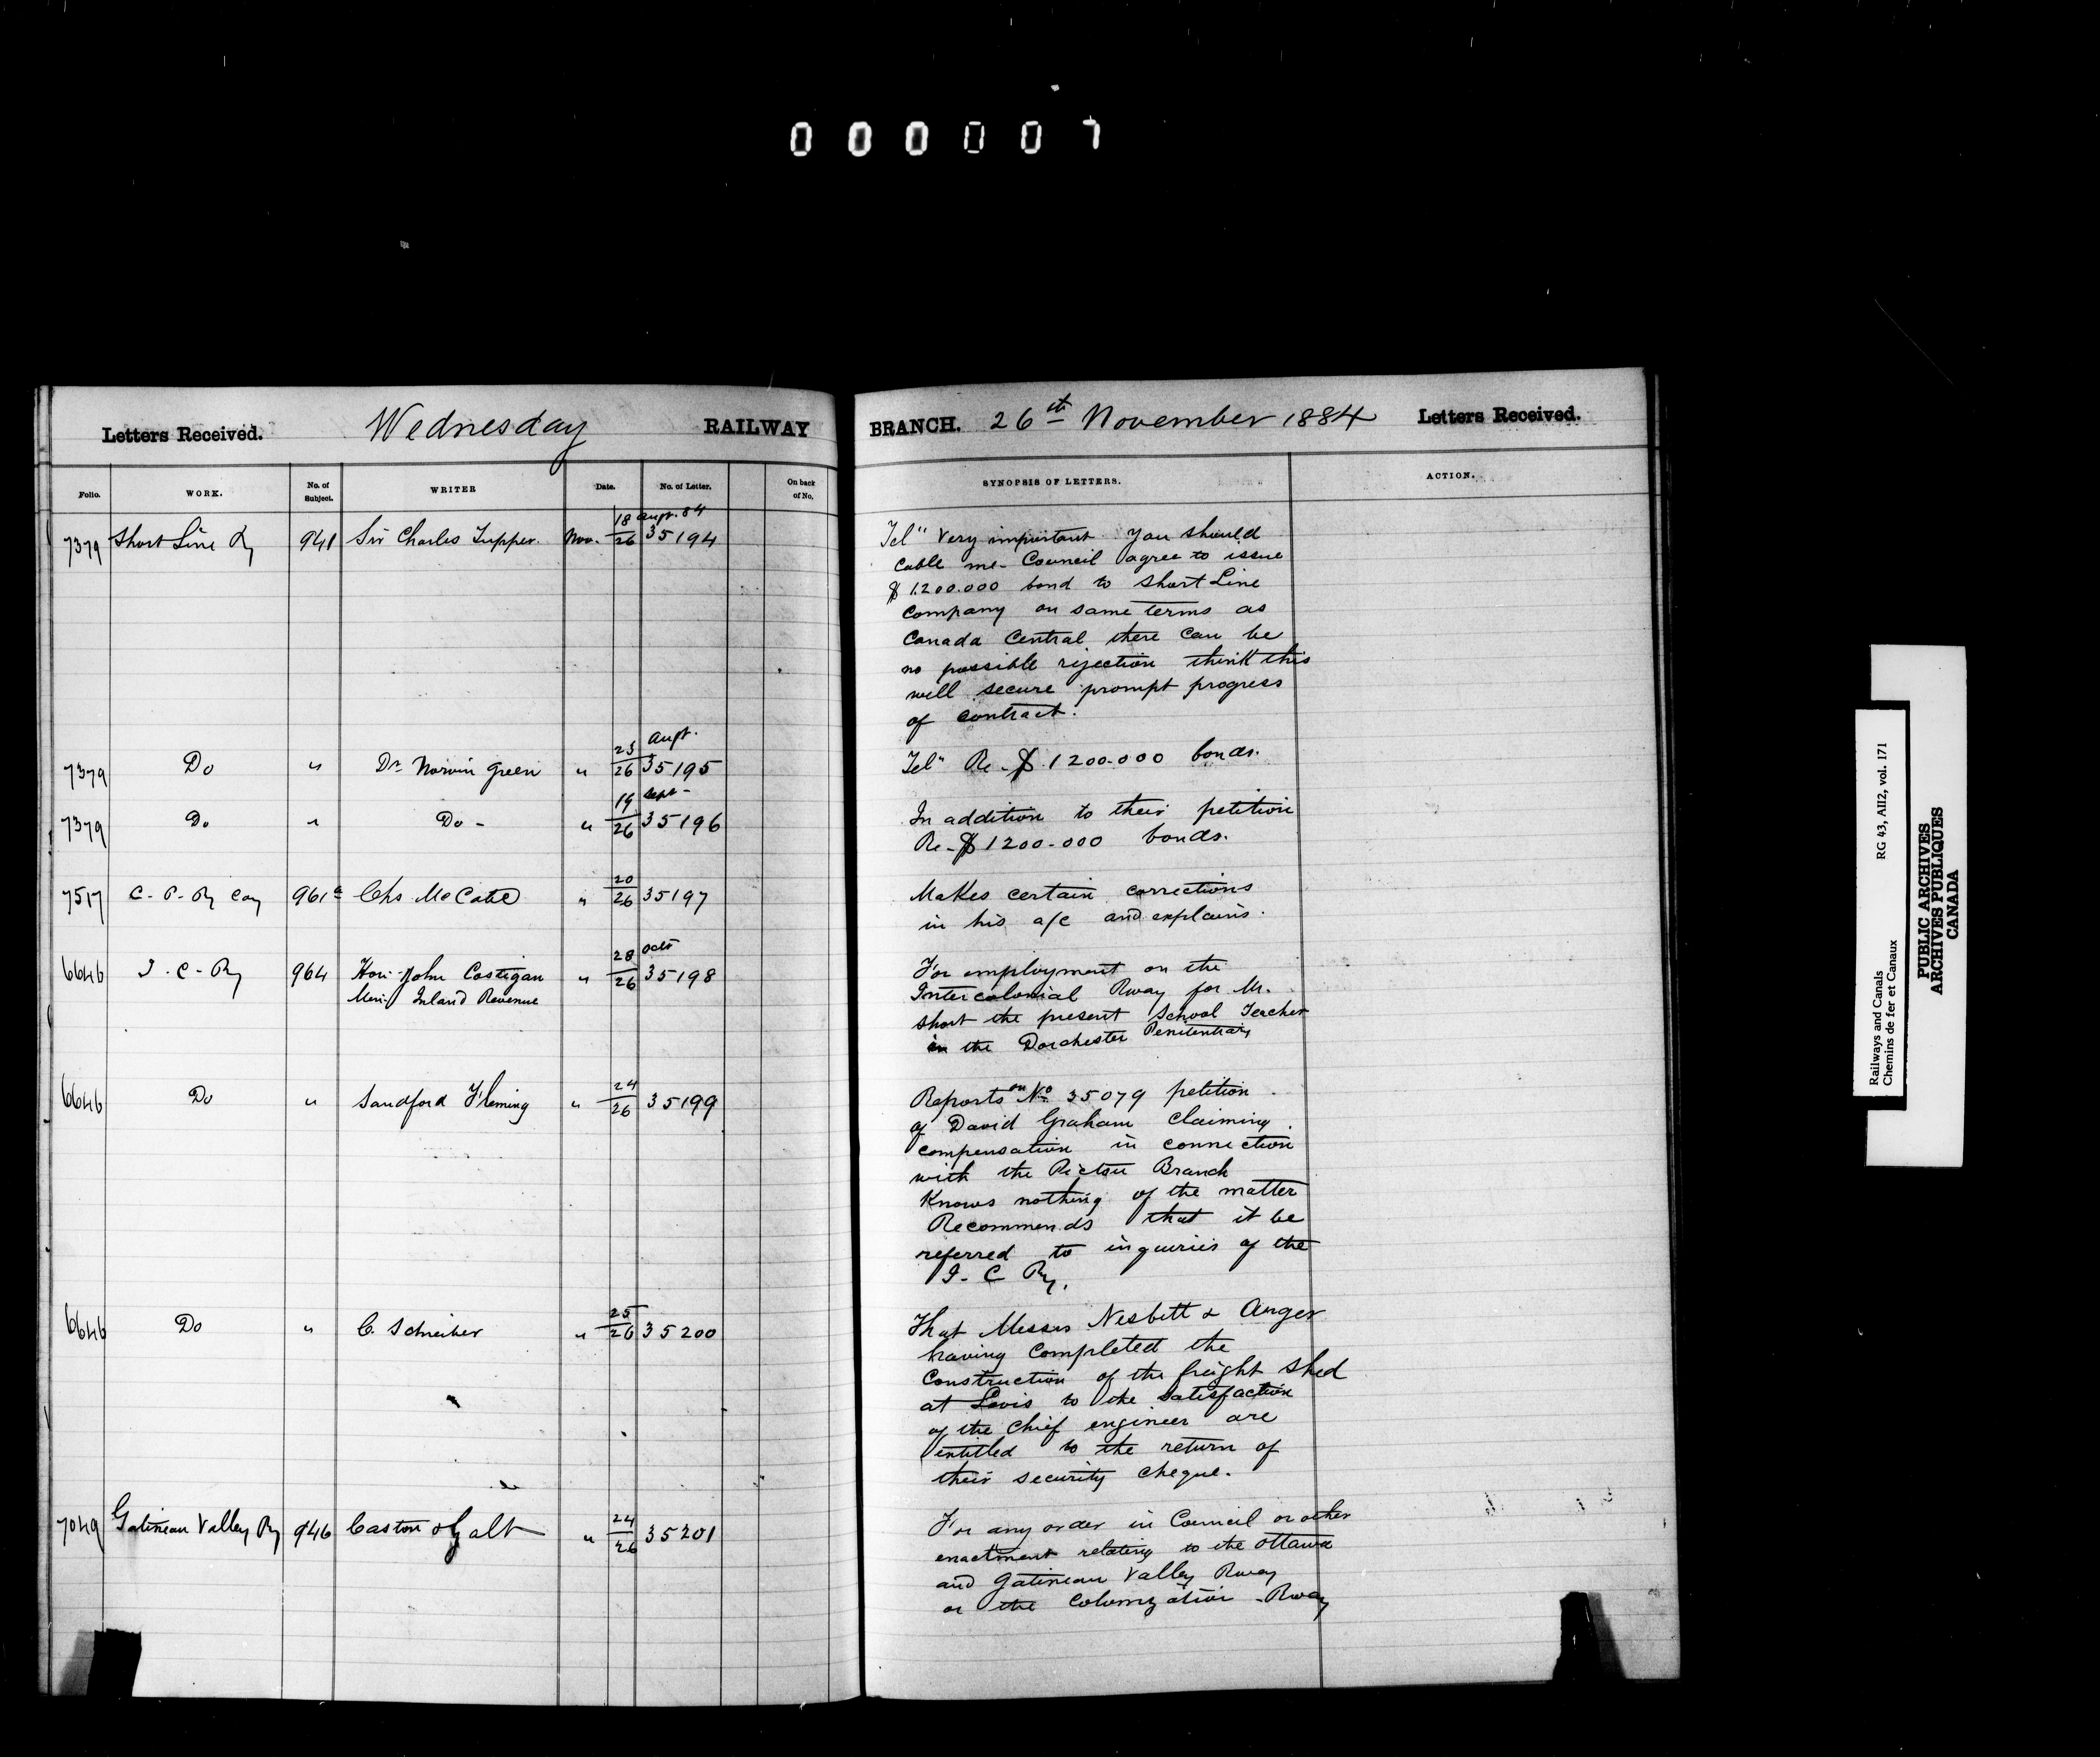 000007
Letters Received. Wednesday RAILWAY BRANCH. 26th November 1884 Letters Received.
Folio. WORK. No. of Subject. WRITER Date. No. of Letter. On back of No. SYNOPSIS OF LETTERS. ACTION.
7379 Short Line Ry 941 Sir Charles Tupper. Nov. 18/26 Augt. 84 35194
Tel" Very important You should
cable me - Council agree to issue
$1.200.000 bond to Short Line
Company on same terms as
Canada Central there can be
no possible rejection think this
will secure prompt progress
of contract.
7379 Do " Dr Norvin Green " 23/26 Augt. 35195
Tel" Re - $.1200.000 bonds.
7379 Do " Do - " 19/26 Sept - 35196
In addition to their petition
Re - $1200-000 bonds.
7517 C. P. Ry Coy 961a Chs McCabe " 20/26 35197
Makes certain corrections
in his a/c and explains.
6646 I - C - Ry 964 Hon John Costigan " 28/26 Oct 35198
Min Inland Revenue
For employment on the
Intercolonial Rway for Mr.
Short the present School Teacher
in the Dorchester Penitentiary
6646 Do " Sandford Fleming " 24/26 35199
Reports on No 35079 petition
of David Graham claiming
compensation in connection
with the Pictou Branch
Knows nothing of the matter
Recommends that it be
referred to inquiries of the
I - C Ry.
6646 Do " C. Schreiber " 25/26 35200
That Messrs Nesbitt & Auger
having completed the
Construction of the freight shed
at Levis to the satisfaction
of the Chief engineer are
entitled to the return of
their security cheque.
7049 Gatineau Valley Ry 946 Caston & Galt " 24/26 35201
For any order in Council or other
enactment relating to the Ottawa
and Gatineau Valley Rway
or the Colonization - Rway
Railways and Canals RG 43, AII2, vol. 171
Chemins de fer et Canaux
PUBLIC ARCHIVES
ARCHIVES PUBLIQUES
CANADA